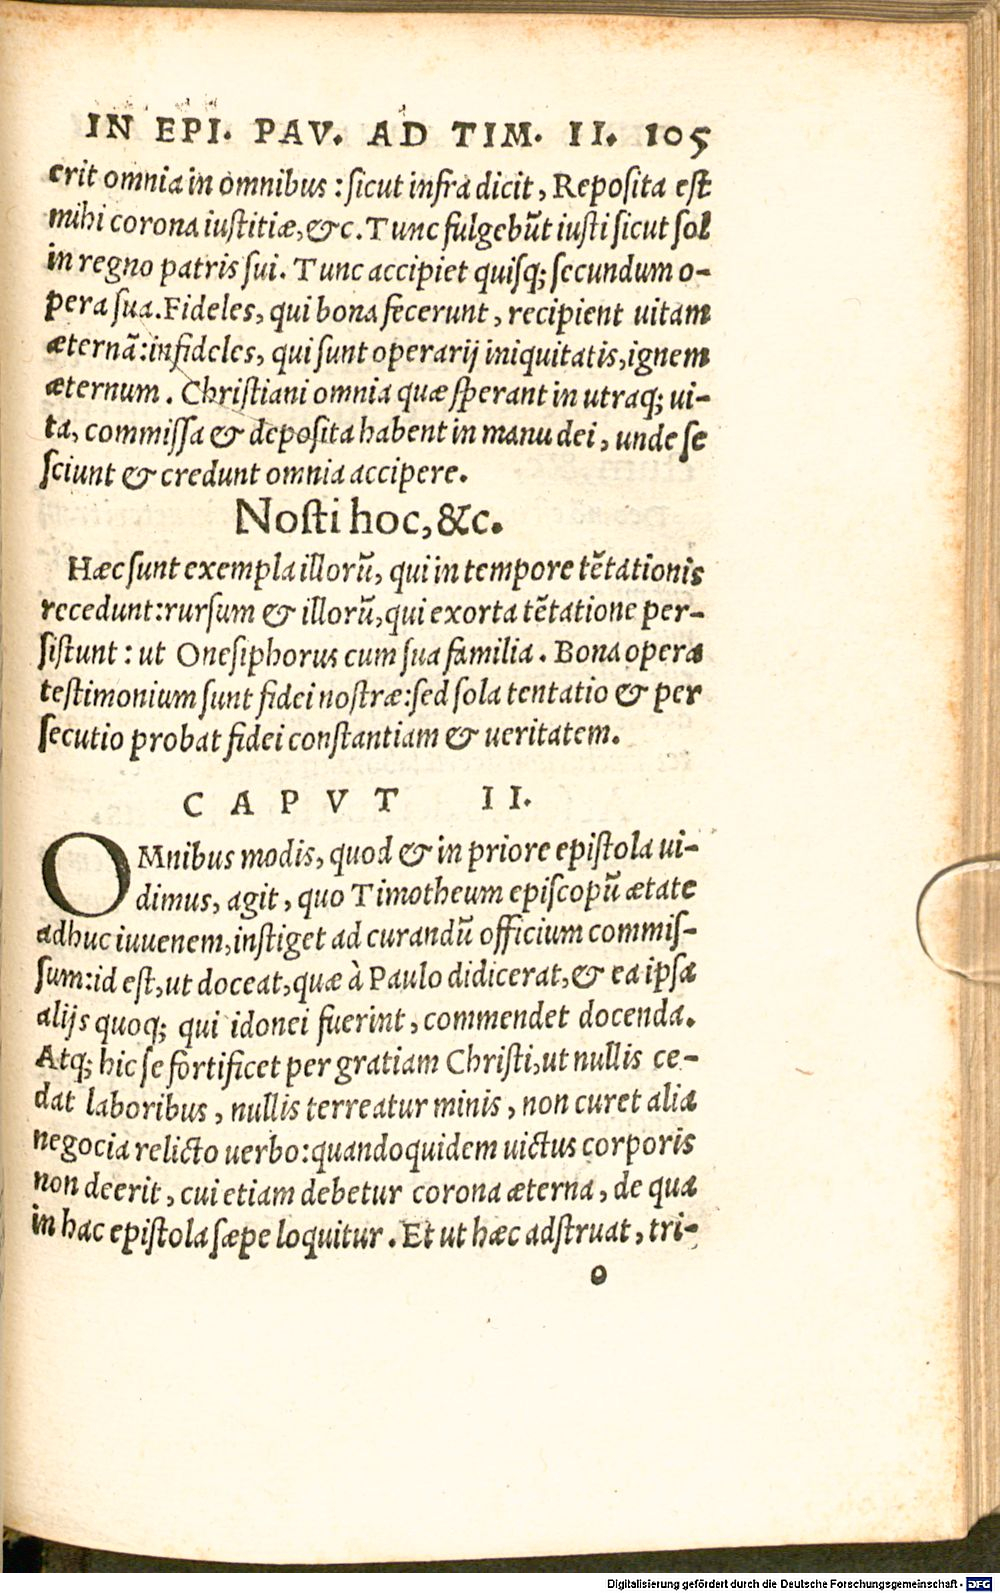 IN EPI. PAV. AD TIM. II. 105
erit omnia in omnibus : sicut infra dicit, Reposita est
mihi corona iustitiæ, &c. Tunc fulgebũt iusti sicut sol
in regno patris sui. Tunc accipiet quisq; secundum o-
pera sua. Fideles, qui bona fecerunt, recipient uitam
æternã: infideles, qui sunt operarij iniquitatis, ignem
æternum. Christiani omnia quæ sperant in utraq; ui-
ta, commissa & deposita habent in manu dei, unde se
sciunt & credunt omnia accipere.
Nosti hoc, &c.
Hæc sunt exempla illorũ, qui in tempore tẽtationis
recedunt: rursum & illorũ, qui exorta tẽtatione per-
sistunt : ut Onesiphorus cum sua familia. Bona opera
testimonium sunt fidei nostræ: sed sola tentatio & per
secutio probat fidei constantiam & ueritatem.
CAPVT II.
OMnibus modis, quod & in priore epistola ui-
dimus, agit, quo Timotheum episcopũ ætate
adhuc iuuenem, instiget ad curandũ officium commis-
sum: id est, ut doceat, quæ à Paulo didicerat, & ea ipsa
alijs quoq; qui idonei fuerint, commendet docenda.
Atq; hic se fortificet per gratiam Christi, ut nullis ce-
dat laboribus, nullis terreatur minis, non curet alia
negocia relicto uerbo: quandoquidem uictus corporis
non deerit, cui etiam debetur corona æterna, de qua
in hac epistola sæpe loquitur. Et ut hæc adstruat, tri-
o
Digitalisierung gefördert durch die Deutsche Forschungsgemeinschaft - DFG